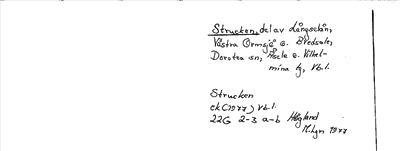 Strucken, del av Långselån,
Västra Ormsjö o. Bredsele,
Dorotea sn, Åsele o. Vilhel-
mina tg, Vb.l.
Strucken
ek (1977) Vb.l.
22G 2-3 a-b Högland
M. Lgn 1977